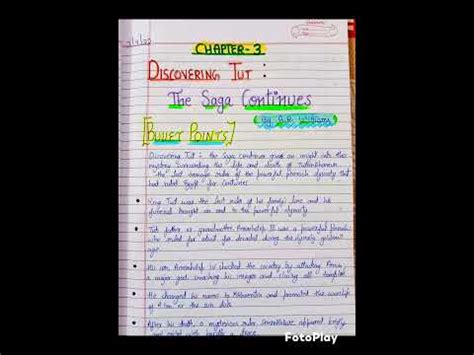 CHAPTER-3
DISCOVERING TUT :
The Saga Continues
By A.R. Williams
[BULLET POINTS]
Discovering Tut : the Saga continues gives an insight into the
mystery surrounding the life and death of Tutankhamun
the last heir of the powerful pharaoh dynasty that
had ruled Egypt for centuries
King Tut was the last ruler of his family line and his
funeral
end to the powerful dynasty
Tut father or grandmother Amenhotep III was a powerful pharaoh
who ruled for about four decades during the dynasty golden
age
His son Amenhotep IV shocked the country by attacking Amun
a major god smashing his images and closing all temples
He changed his name to Akhenaten and promoted the worship
of Aten or the sun disk
After his death, a mysterious ruler Smenkhkare appeared briefly
and
with hardly a trace
FotoPlay